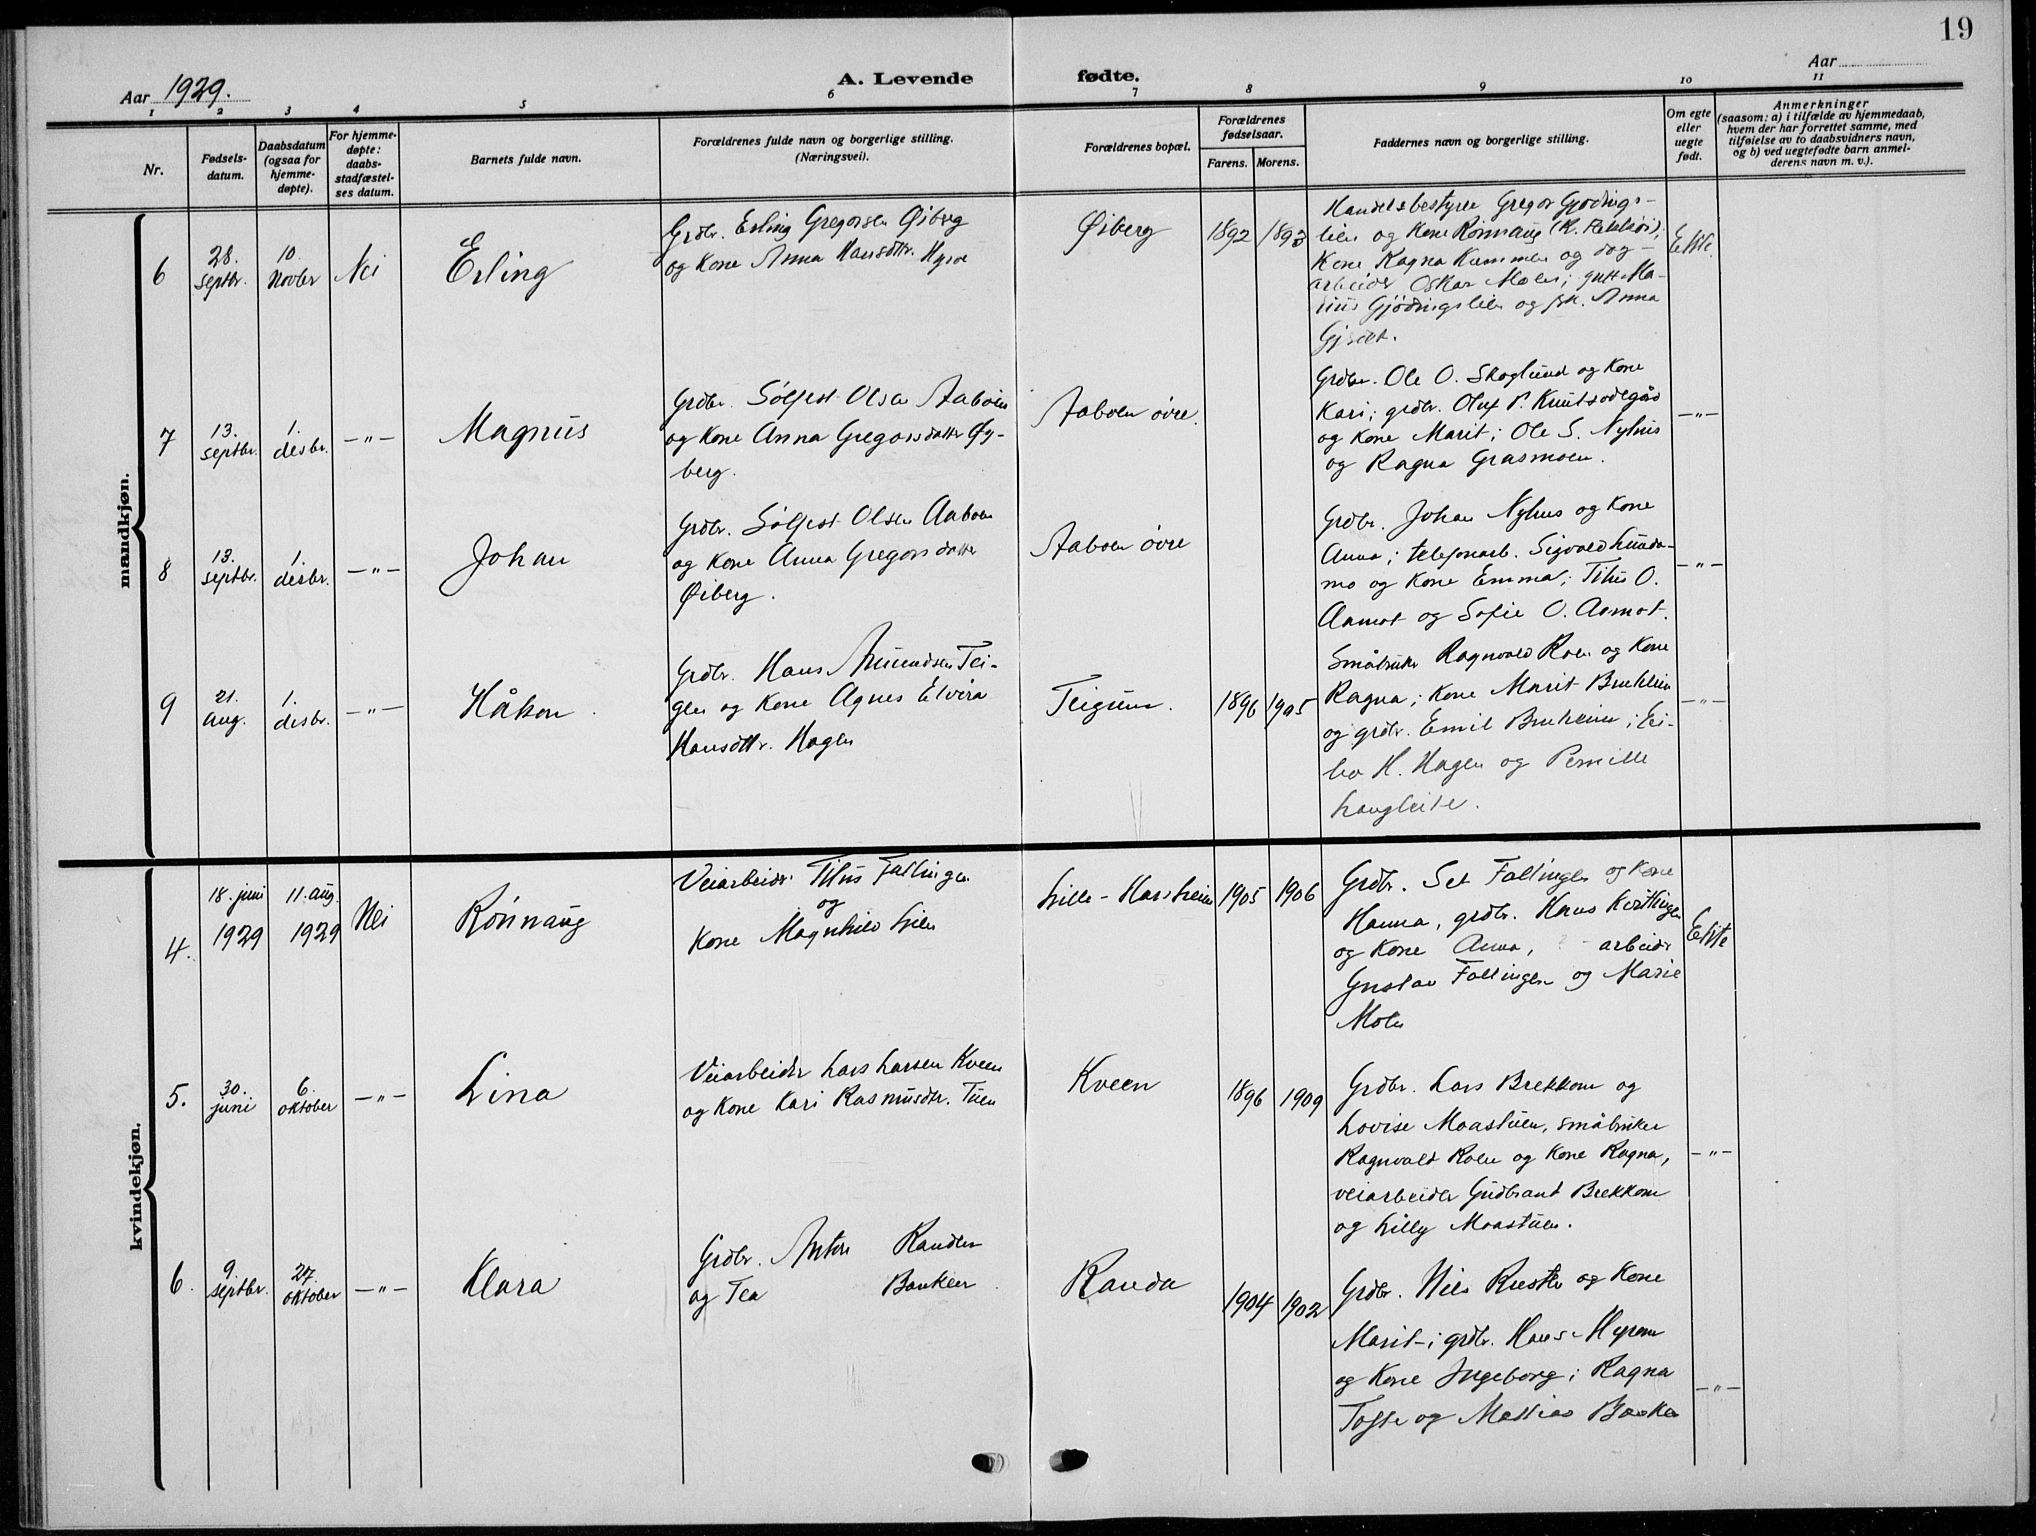 19
Aar 1929.
A. Levende fødte.
Aar
1 2 3 4 5 6 7 8 9 10 11
Nr.
Fødsels-
datum.
Daabsdatum
(ogsaa for
hjemme-
døpte).
For hjemme-
døpte:
daabs-
stadfæstel-
ses datum.
Barnets fulde navn.
Forældrenes fulde navn og borgerlige stilling.
(Næringsvei).
Forældrenes bopæl.
Forældrenes
fødselsaar.
Farens. Morens.
Faddernes navn og borgerlige stilling.
Om egte
eller
uegte
født.
Anmerkninger
(saasom: a) i tilfælde av hjemmedaab,
hvem der har forrettet samme, med
tilføielse av to daabsvidners navn,
og b) ved uegtefødte barn anmel-
derens navn m. v.).
mandkjøn.
6
28.
septbr.
10.
Novbr
Nei
Erling
Grdbr. Erling Gregorsen Øiberg
og Kone Anna Hansdttr.
Øiberg
1892
1893
Handelsbestyrer Gregor Gjødings-
lien og Kone Rønnaug
Kone Ragna Kummen og dag-
arbeider Oskar Molen; gutt Ma-
rius Gjødingslien og pk. Anna
Ekte.
7
13.
septbr.
1.
desbr.
—"—
Magnus
Grdbr. Sølfest Olsen Aaboen
og Kone Anna Gregorsdatter Øy-
berg.
Aaboen øvre.
Grdbr. Ole O. Skoglund og Kone
Kari; grdbr. Oluf P. Knutsødegård
og Kone Marit; Ole S. Nyhus
og Ragna Grasmoen.
—"—
8
13.
septbr.
1.
desbr.
—"—
Johan
Grdbr. Sølfest Olsen Aaboen
og Kone Anna Gregorsdatter
Øiberg.
Aaboen øvre
Grdbr. Johan Nyhus og Kone
Anna; telefonarb. Sigvald Lunda-
mo og Kone Emma; Titus O.
Aamot og Sofie O. Aamot.
—"—
9
21.
aug.
1.
desbr.
—"—
Håkon
Grdbr. Hans Amundsen Tei-
gen og Kone Agnes Elvira
Hansdttr. Hagen
Teigum.
1896
1905
Småbruker Ragnvald Roen og Kone
Ragna; Kone Marit Bruheim
og grdbr. Emil Bruheim; Ei-
liv H. Hagen og Pernille
Haugleite.
—"—
kvindekjøn.
4.
18. juni
1929
11. aug.
1929
Nei
Rønnaug
Veiarbeider Titus Follingen
og
Kone Magnhild Lien
Lille-Harsheim
1905
1906
Grdbr. Set Follingen og Kone
Hanna, grdbr. Hans Kvitlingen
og Kone Anna, arbeider
Gustav Follingen og Marie
Molen
Ekte
5.
30.
juni
6.
oktober
—"—
Lina
Veiarbeider Lars Larsen Kveen
og Kone Kari Rasmusdtr. Tuen
Kveen
1896
1909
Grdbr. Lars Brekkom og
Lovise Moastuen, småbruker
Ragnvald Roen og Kone Ragna,
veiarbeider Gudbrant Brekkom
og Lilly Moastuen.
—"—
6.
9.
septbr.
27.
oktober
—"—
Klara
Grdbr. Anton Randen
og Tea Bakken
Randa
1904
1902
Grdbr. Nils og Kone
Marit; grdbr. Hans Myrom
og Kone Ingeborg; Ragna
Tofte og Mattias Bakken
—"—